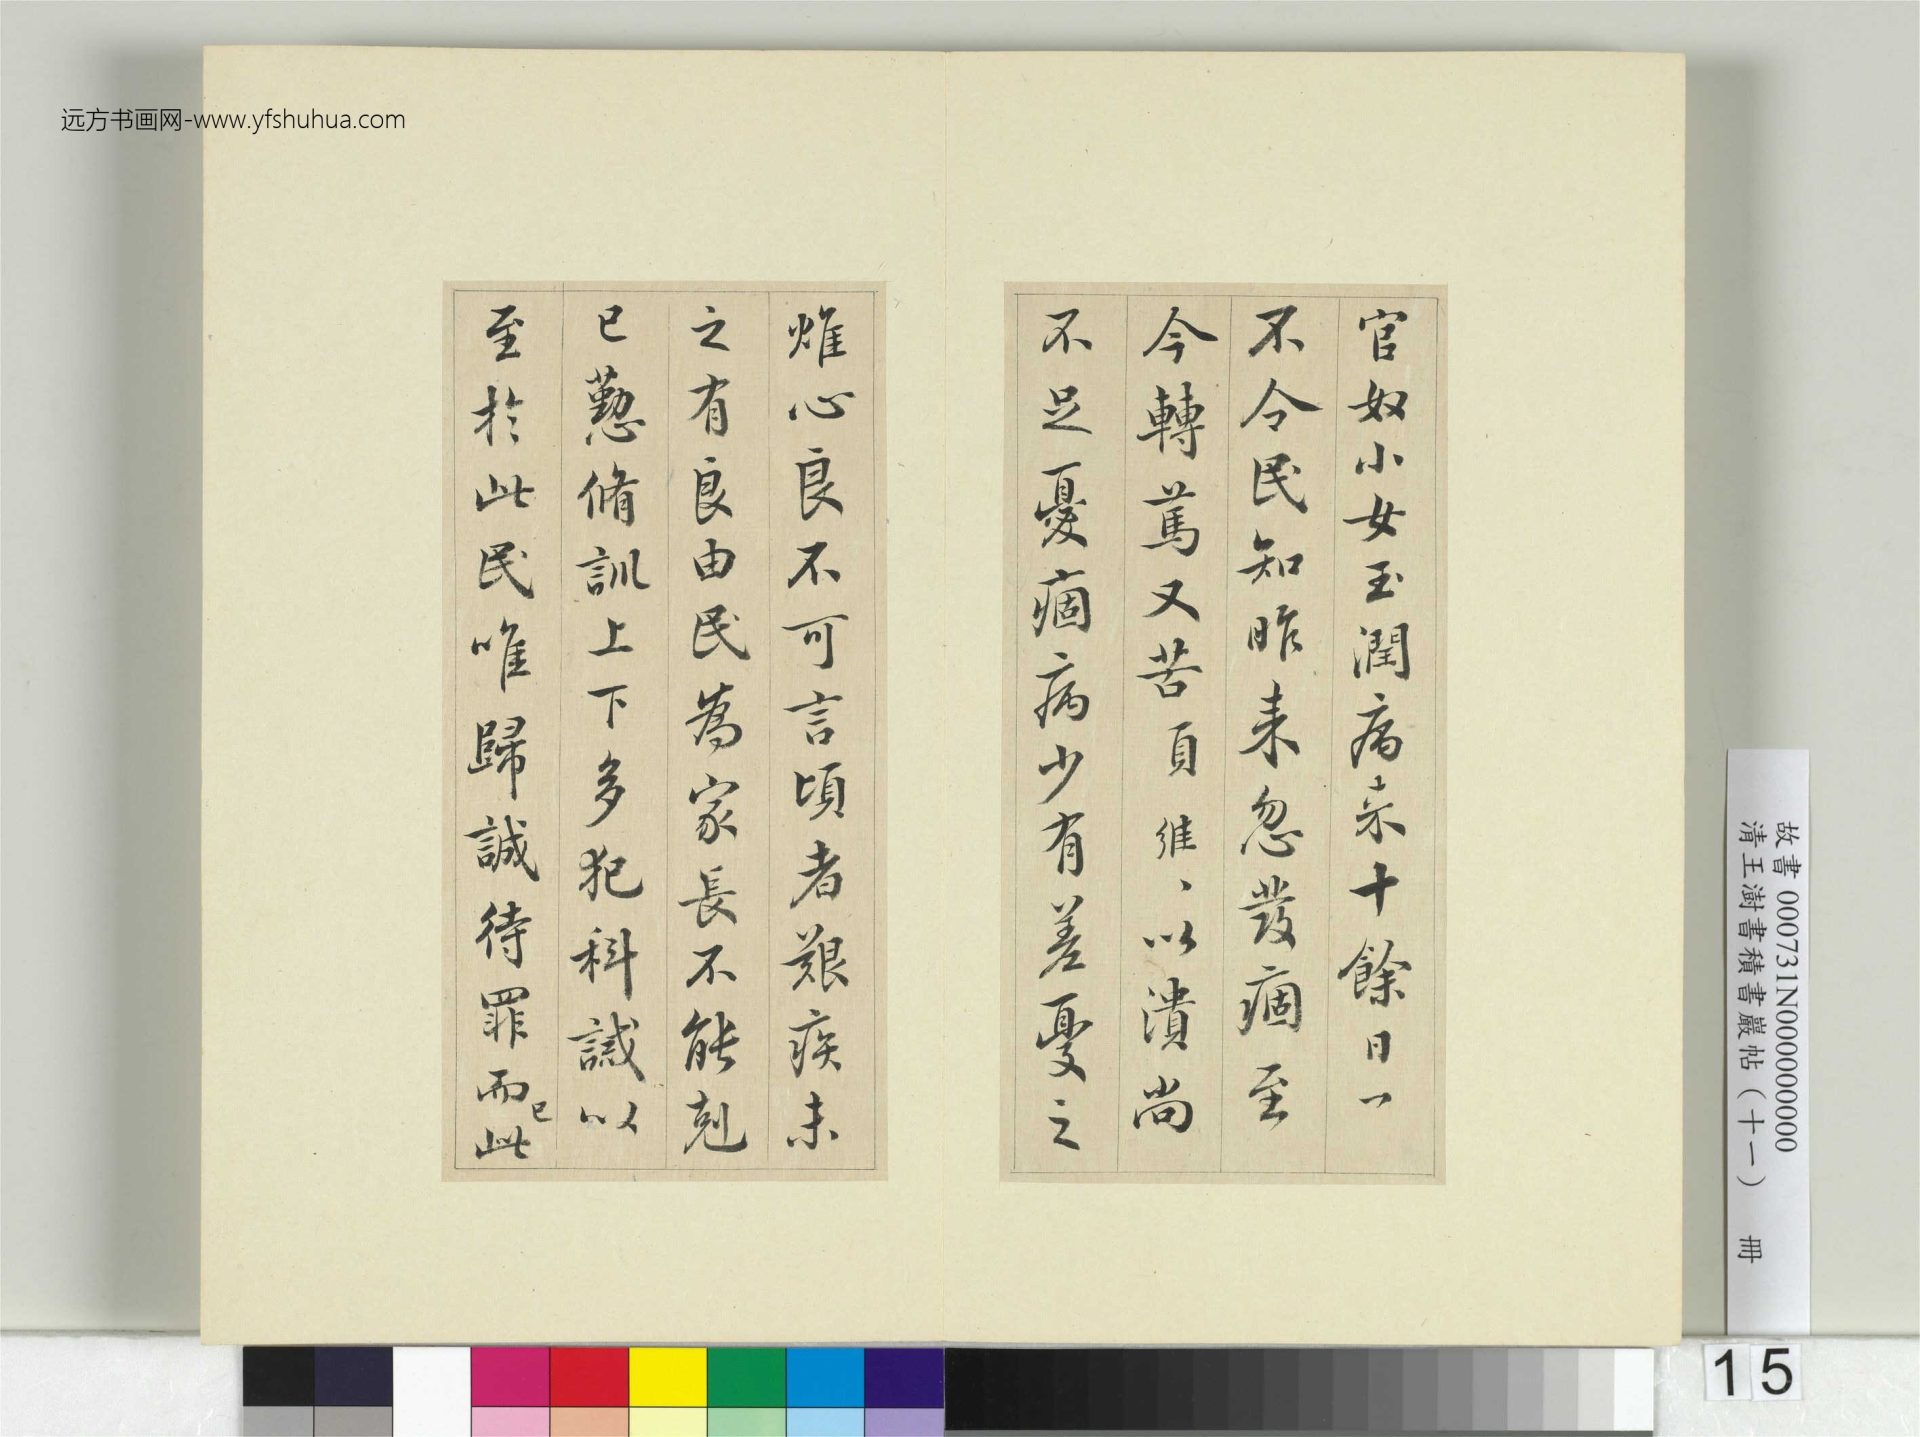 远方书画网-www.yfshuhua.com
官奴小女玉潤病来十餘日一
不令民知昨来忽發痼至
今轉篤又苦頭維、以潰尚
不足憂痼病少有差憂之
燋心良不可言頃者艱疾未
之有良由民為家長不能剋
己懃脩訓上下多犯科誡以
至於此民唯歸誠待罪而已此
故書 000731N000000000
清王澍書積書巖帖(十一) 冊
15